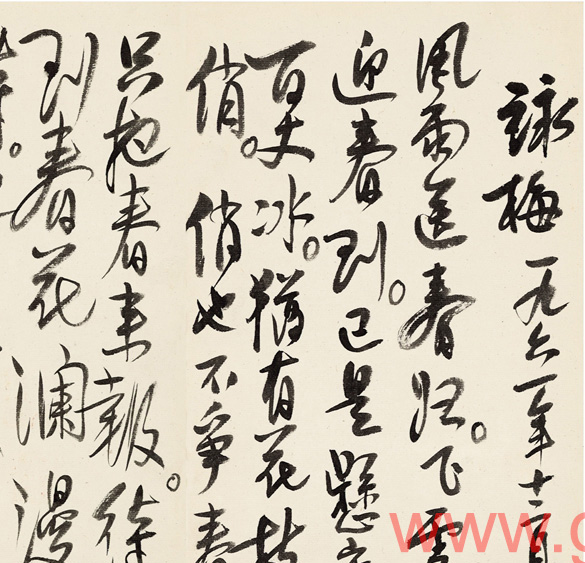 詠梅 一九六一年十二月
風雨送春歸。飞雪
迎春到。已是懸
百丈冰。猶有花枝
俏。俏也不爭春
只把春来報。待
到春花瀾漫
www.g